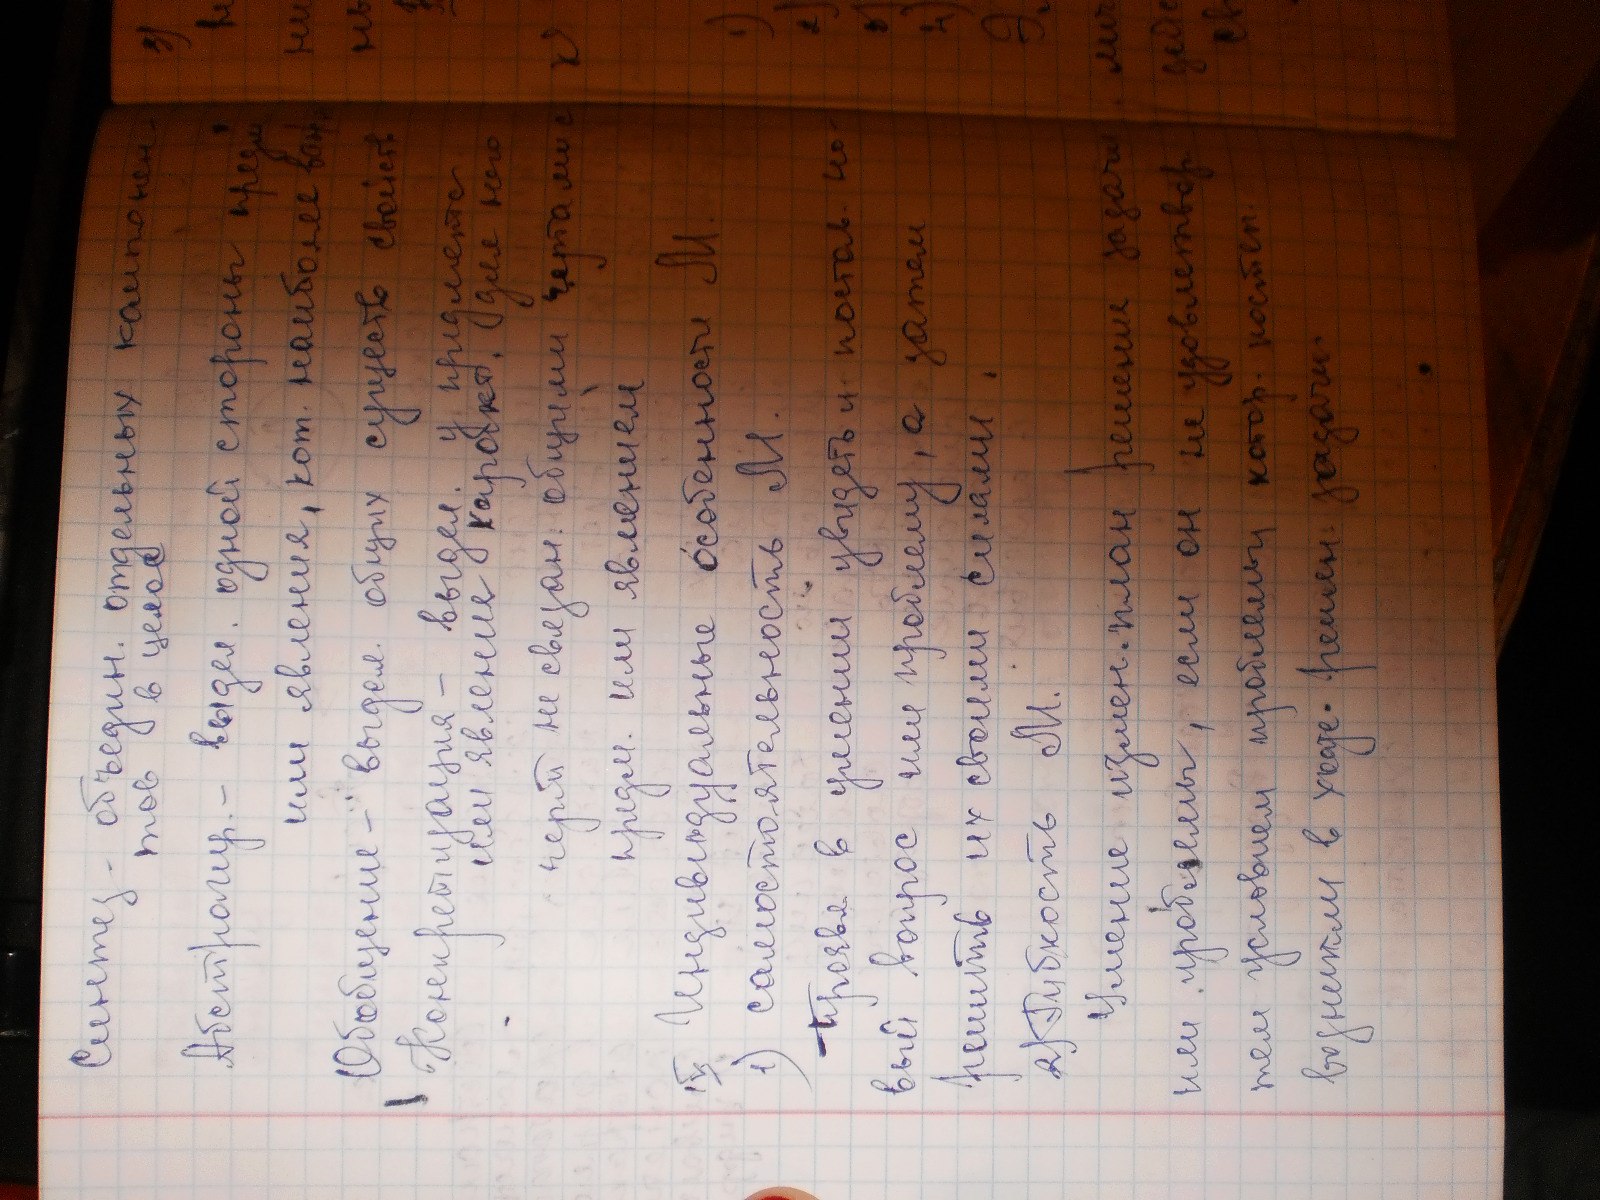 Синтез - объединин. отдельных компонен-
тов в целое
Абстрагир. - выдел. одной стороны предм
или явления, кот. наиболее важн.
Обобщение - выдел. общих существ свойств
Конкретизация - выдел. у предмета
или явление характ. для него
черт не связан. общими чертами с
предм. или явлением
IV Индивидуальные особенности М.
1) самостоятельность М.
- Прояв в умении увидеть и постав. но-
вый вопрос или проблему, а затем
решить их своими силами.
2) Гибкость М.
Умение измен. план решения задачи
или проблемы, если он не удовлетвор.
тем условием проблемы котор. постеп.
возникли в ходе. решен. задачи.
3)
1)
2)
3)
4)